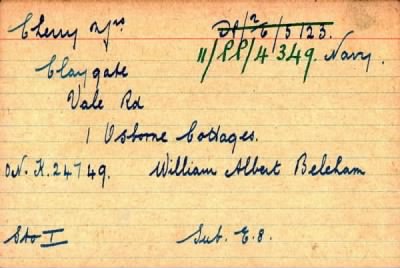 Cherry Mrs
D1/2 6/5/23.
11/PP/4349. Navy.
Claygate
Vale Rd
1 Osborne Cottages.
O.N. K.24749. William Albert Belcham
Sto I Sub. E.8.